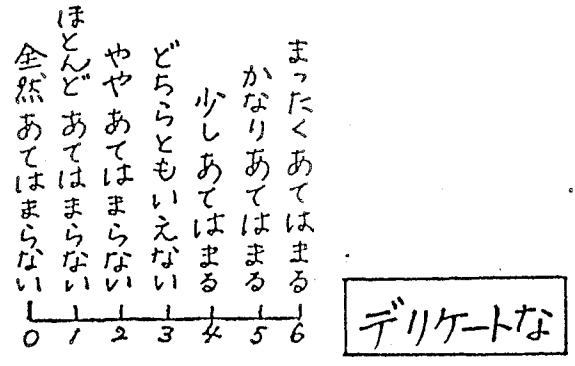 全然あてはまらない
ほとんどあてはまらない
ややあてはまらない
どちらともいえない
少しあてはまる
かなりあてはまる
まったくあてはまる
0 1 2 3 4 5 6
デリケートな